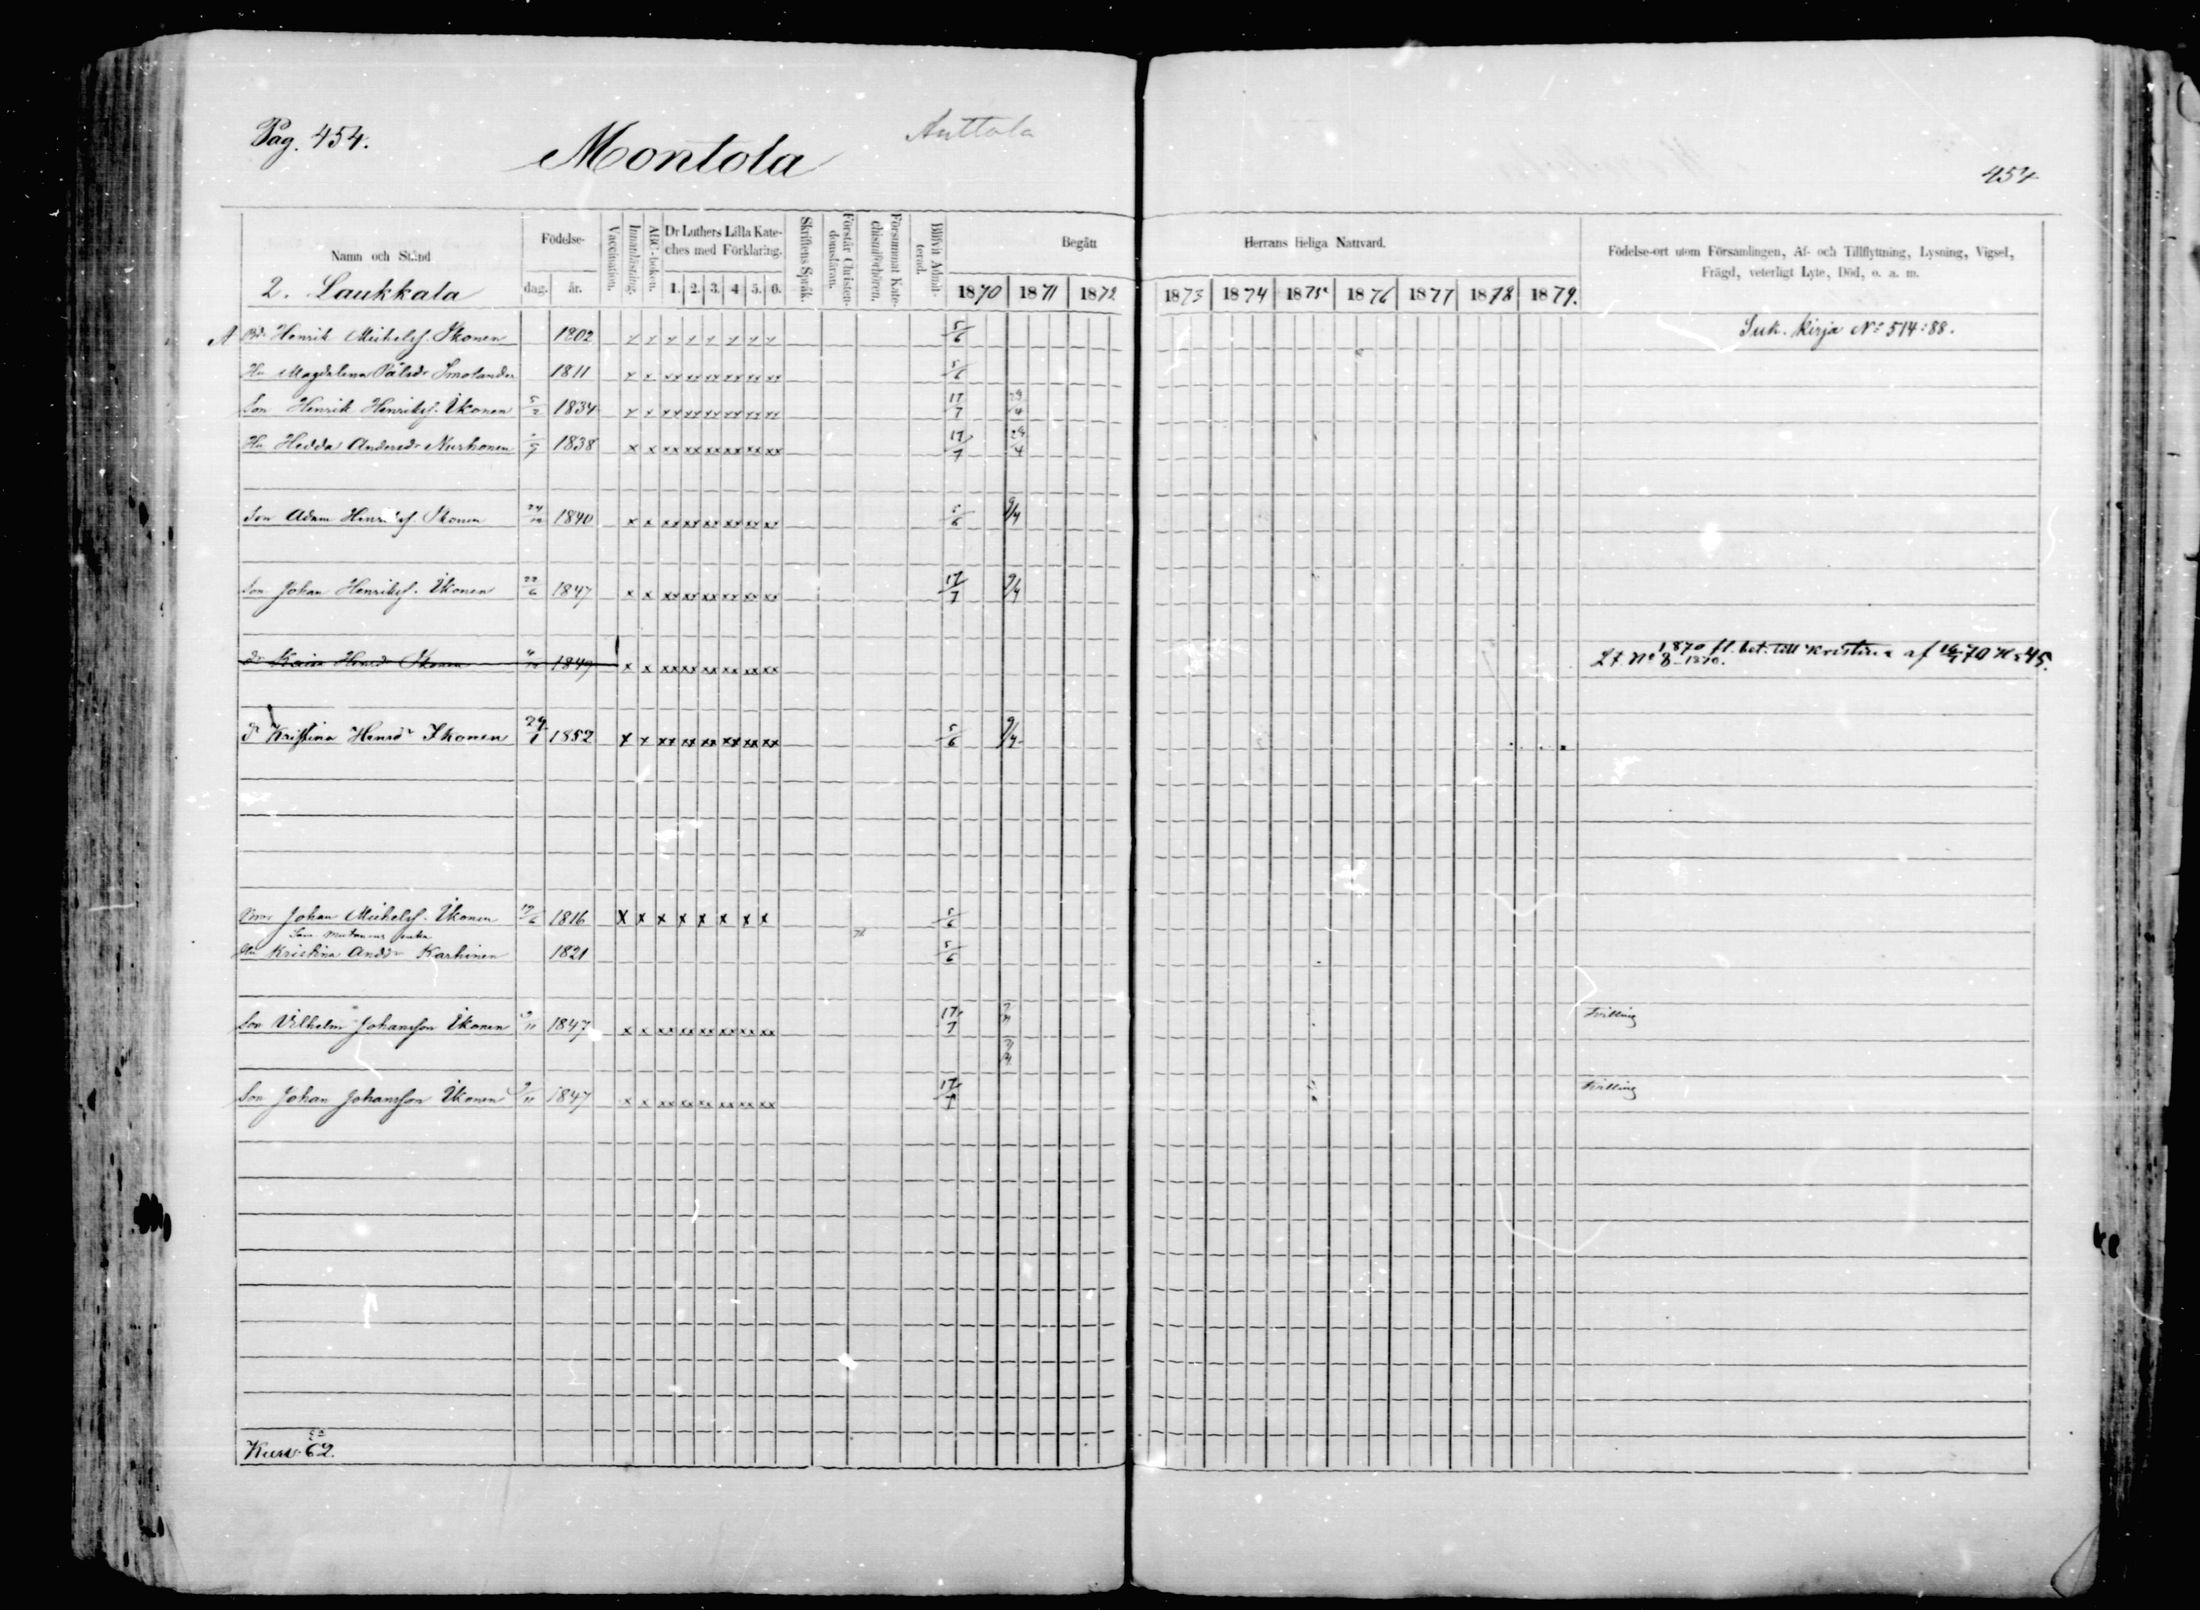 Pag. 454.
Montola
Anttola
454
Namn och Stånd
Födelse-
dag.
år.
Vaccination.
Innanläsning.
ABC-boken.
Dr Luthers Lilla Kate-
ches med Förklaring.
1. 2. 3. 4 5. 6.
Skriftens Språk.
Förstår Christen-
domsläran.
Försummat Kate-
chismiförhören.
Blifvit Admit-
terad.
Begått
Herrans Heliga Nattvard.
1870 1871 1872
1873 1874 1875 1876 1877 1878 1879.
Födelse-ort utom Församlingen, Af- och Tillflyttning, Lysning, Vigsel,
Frägd, veterligt Lyte, Död, o. a. m.
2. Laukkala
Henrik Michelss. Ikonen 1802 x x x x x x x x 5/6 Suk. kirja No 514:88.
Hu Magdalena Pålsdr Smolander 1811 x x xx xx xx xx xx xx 5/6
Son Henrik Henrikss. Ikonen 5/2 1834 x x xx xx xx xx xx xx 17/7
Hu Hedda Andersdr Nurhonen 1838 x x xx xx xx xx xx xx 17/7
Son Adam Henrikss. Ikonen 1840 x x xx xx xx xx xx xx 5/6 9/4
Son Johan Henrikss. Ikonen 22/6 1847 x x xx xx xx xx xx xx 17/7 9/4
dr Kaisa Henrdr Ikonen 1849 x x xx xx xx xx xx xx
1870 fl. bet. till Kristina af 16/7 70 No 45.
Lt No 8-1870.
dr Kristina Henrdr Ikonen 29/1 1852 x x xx xx xx xx xx xx 5/6 9/4
Johan Michelss. Ikonen 19/6 1816 x x x x x x x x 5/6
Hu Kristina Andsdr Karhinen 1821 5/6
Son Vilhelm Johansson Ikonen 9/11 1847 x x xx xx xx xx xx xx 17/7 Tvilling
Son Johan Johansson Ikonen 9/11 1847 x x xx xx xx xx xx xx 17/7 Tvilling
Kurv. 62.